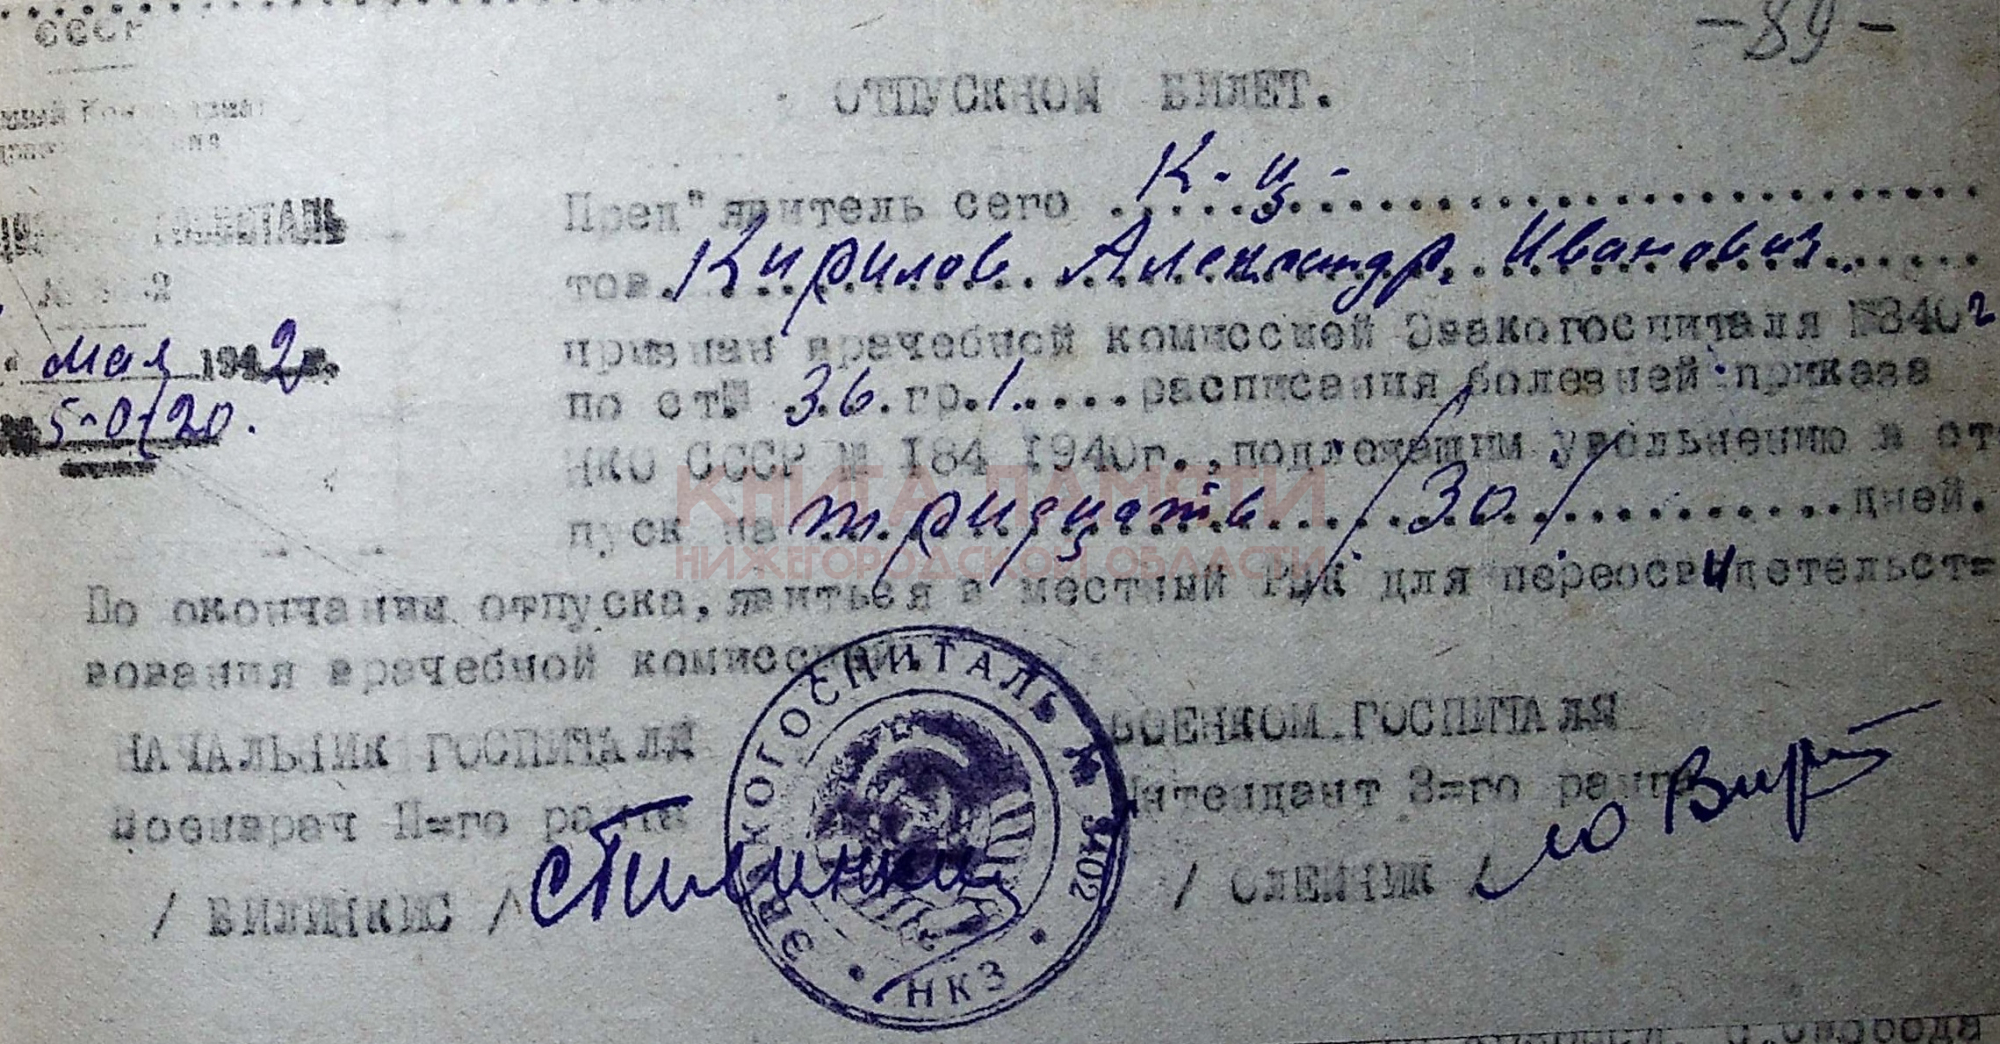 СССР
-89-
ОТПУСКНОЙ БИЛЕТ.
ГОСПИТАЛЬ
мая 1942г.
5-0/20.
Пред"явитель сего К-ц-
тов. Кирилов Александр Иванович
признан врачебной комиссией Эвакогоспиталя №3402
по ст.№ 36. гр.1. расписания болезней приказа
НКО СССР № 184 1940г., подлежащим увольнению в от
пуск на тридцать /30/ дней.
По окончании отпуска, явиться в местный РВК для переосвидетельст=
вования врачебной комиссией.
НАЧАЛЬНИК ГОСПИТАЛЯ
Военврач II=го ранга
/ ВИЛИНКИС /
ВОЕНКОМ ГОСПИТАЛЯ
Интендант 3=го ранга
/ ОЛЕЙНИК /
ЭВАКОГОСПИТАЛЬ № 3402
НКЗ
КНИГА ПАМЯТИ
НИЖЕГОРОДСКОЙ ОБЛАСТИ
Свобода